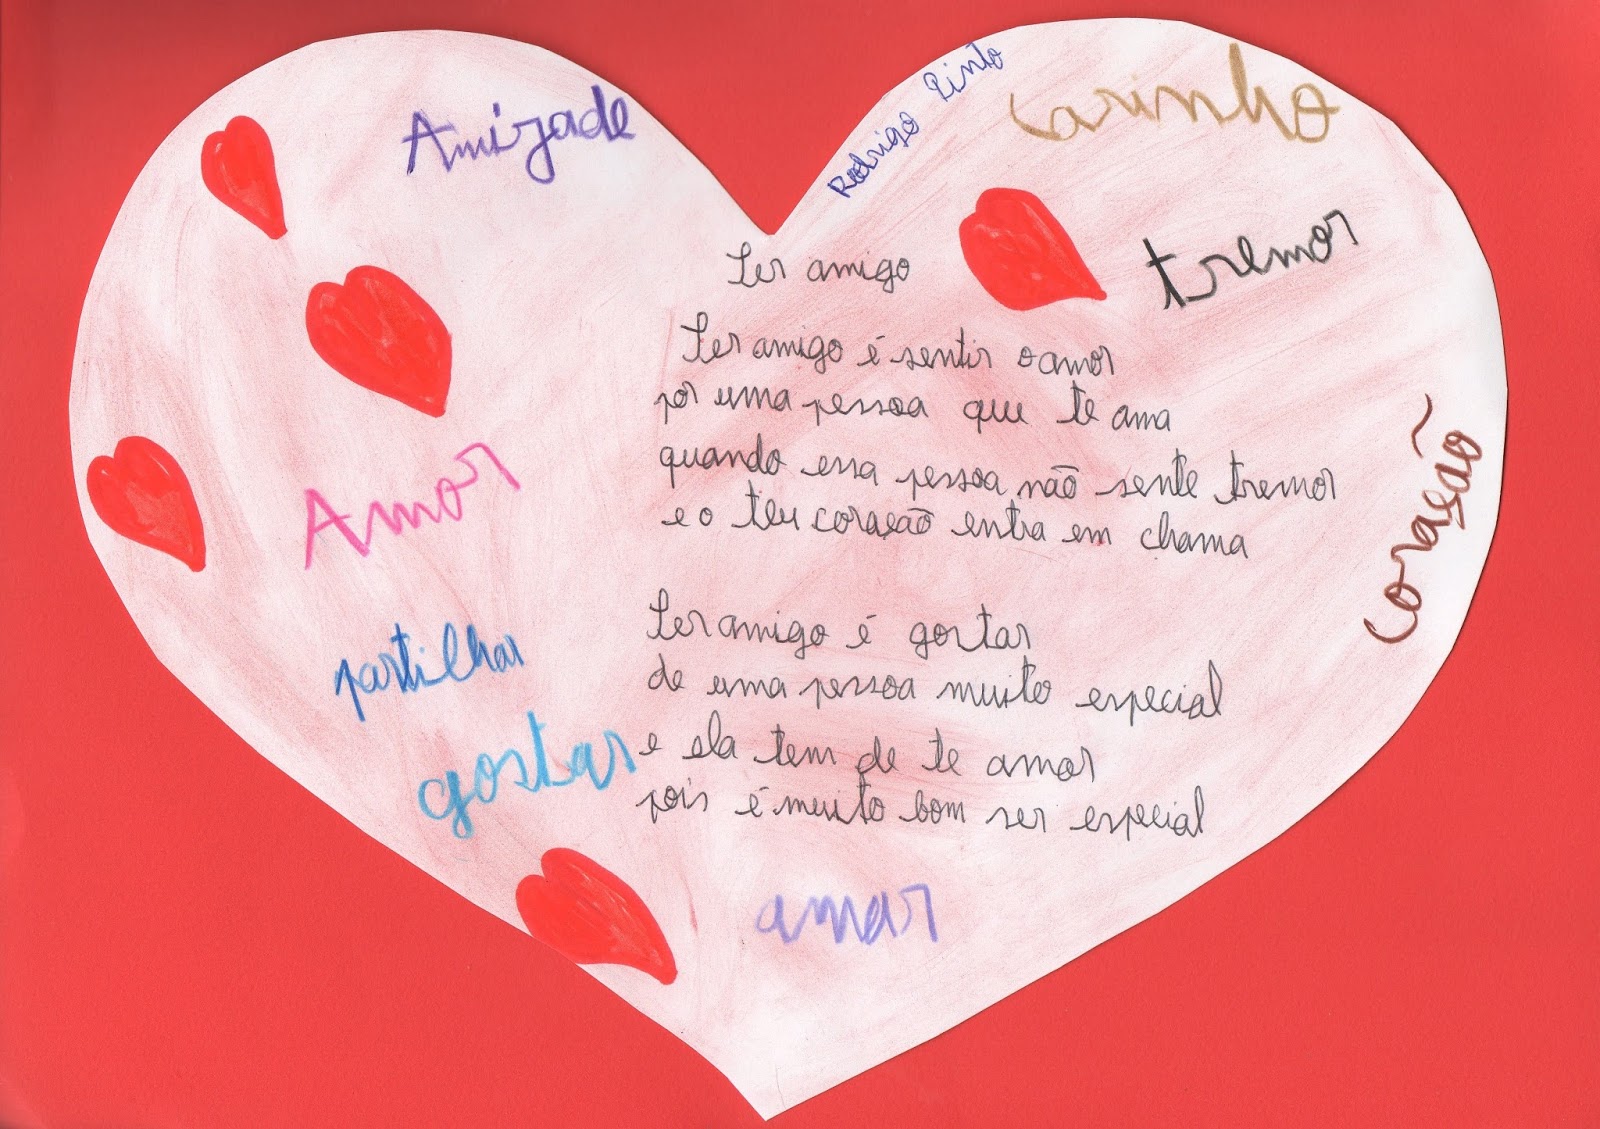 Amizade
Rodrigo Pinto
carinho
tremor
Ser amigo
Ser amigo é sentir o amor
por uma pessoa que te ama
quando essa pessoa não sente tremor
e o teu coração entra em chama
Amor
coração
Ser amigo é gostar
de uma pessoa muito especial
e ela tem de te amar
pois é muito bom ser especial
partilhar
gostar
amar